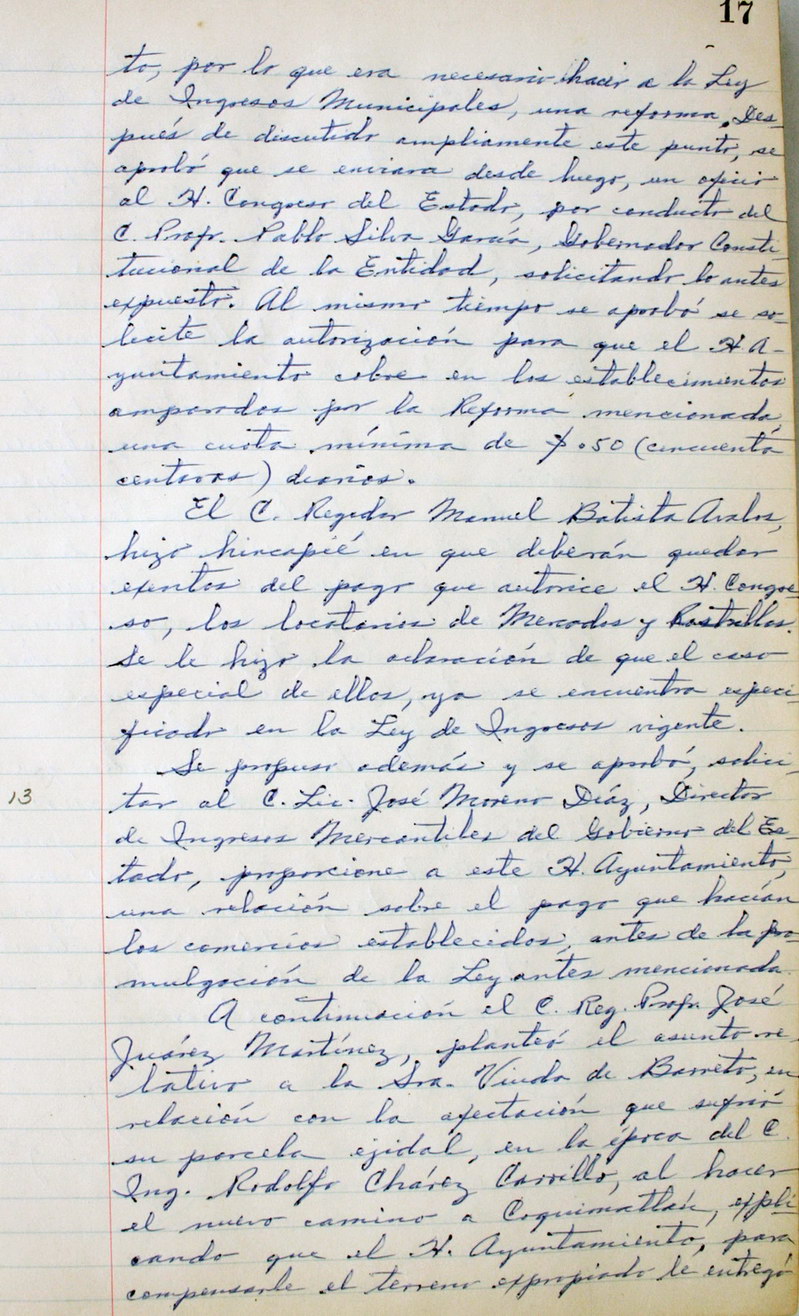 17
to, por lo que era necesario hacer a la Ley
de Ingresos Municipales, una reforma. Des-
pués de discutido ampliamente este punto, se
aprobó que se enviara desde luego, un oficio
al H. Congreso del Estado, por conducto del
C. Profr. Pablo Silva García, Gobernador Consti-
tucional de la Entidad, solicitando lo antes
expuesto. Al mismo tiempo se aprobó se so-
licite la autorización para que el H. A-
yuntamiento cobre en los establecimientos
amparados por la Reforma mencionada,
una cuota mínima de $.50 (cincuenta
centavos) diarios.
El C. Regidor Manuel Batista Avalos,
hizo hincapié en que deberán quedar
exentos del pago que autorice el H. Congre-
so, los locatarios de Mercados y Rastrillos.
Se le hizo la aclaración de que el caso
especial de ellos, ya se encuentra especi-
ficado en la Ley de Ingresos vigente.
Se propuso además y se aprobó, solici-
13
tar al C. Lic. José Moreno Díaz, Director
de Ingresos Mercantiles del Gobierno del Es-
tado, proporcione a este H. Ayuntamiento,
una relación sobre el pago que hacían
los comercios establecidos, antes de la pro-
mulgación de la Ley antes mencionada.
A continuación el C. Reg. Profr. José
Juárez Martínez, planteó el asunto re-
lativo a la Sra. Viuda de Barreto, en
relación con la afectación que sufrió
su parcela ejidal, en la época del C.
Ing. Rodolfo Chávez Carrillo, al hacer
el nuevo camino a Coquimatlán, expli-
cando que el H. Ayuntamiento, para
compensarle el terreno expropiado le entregó